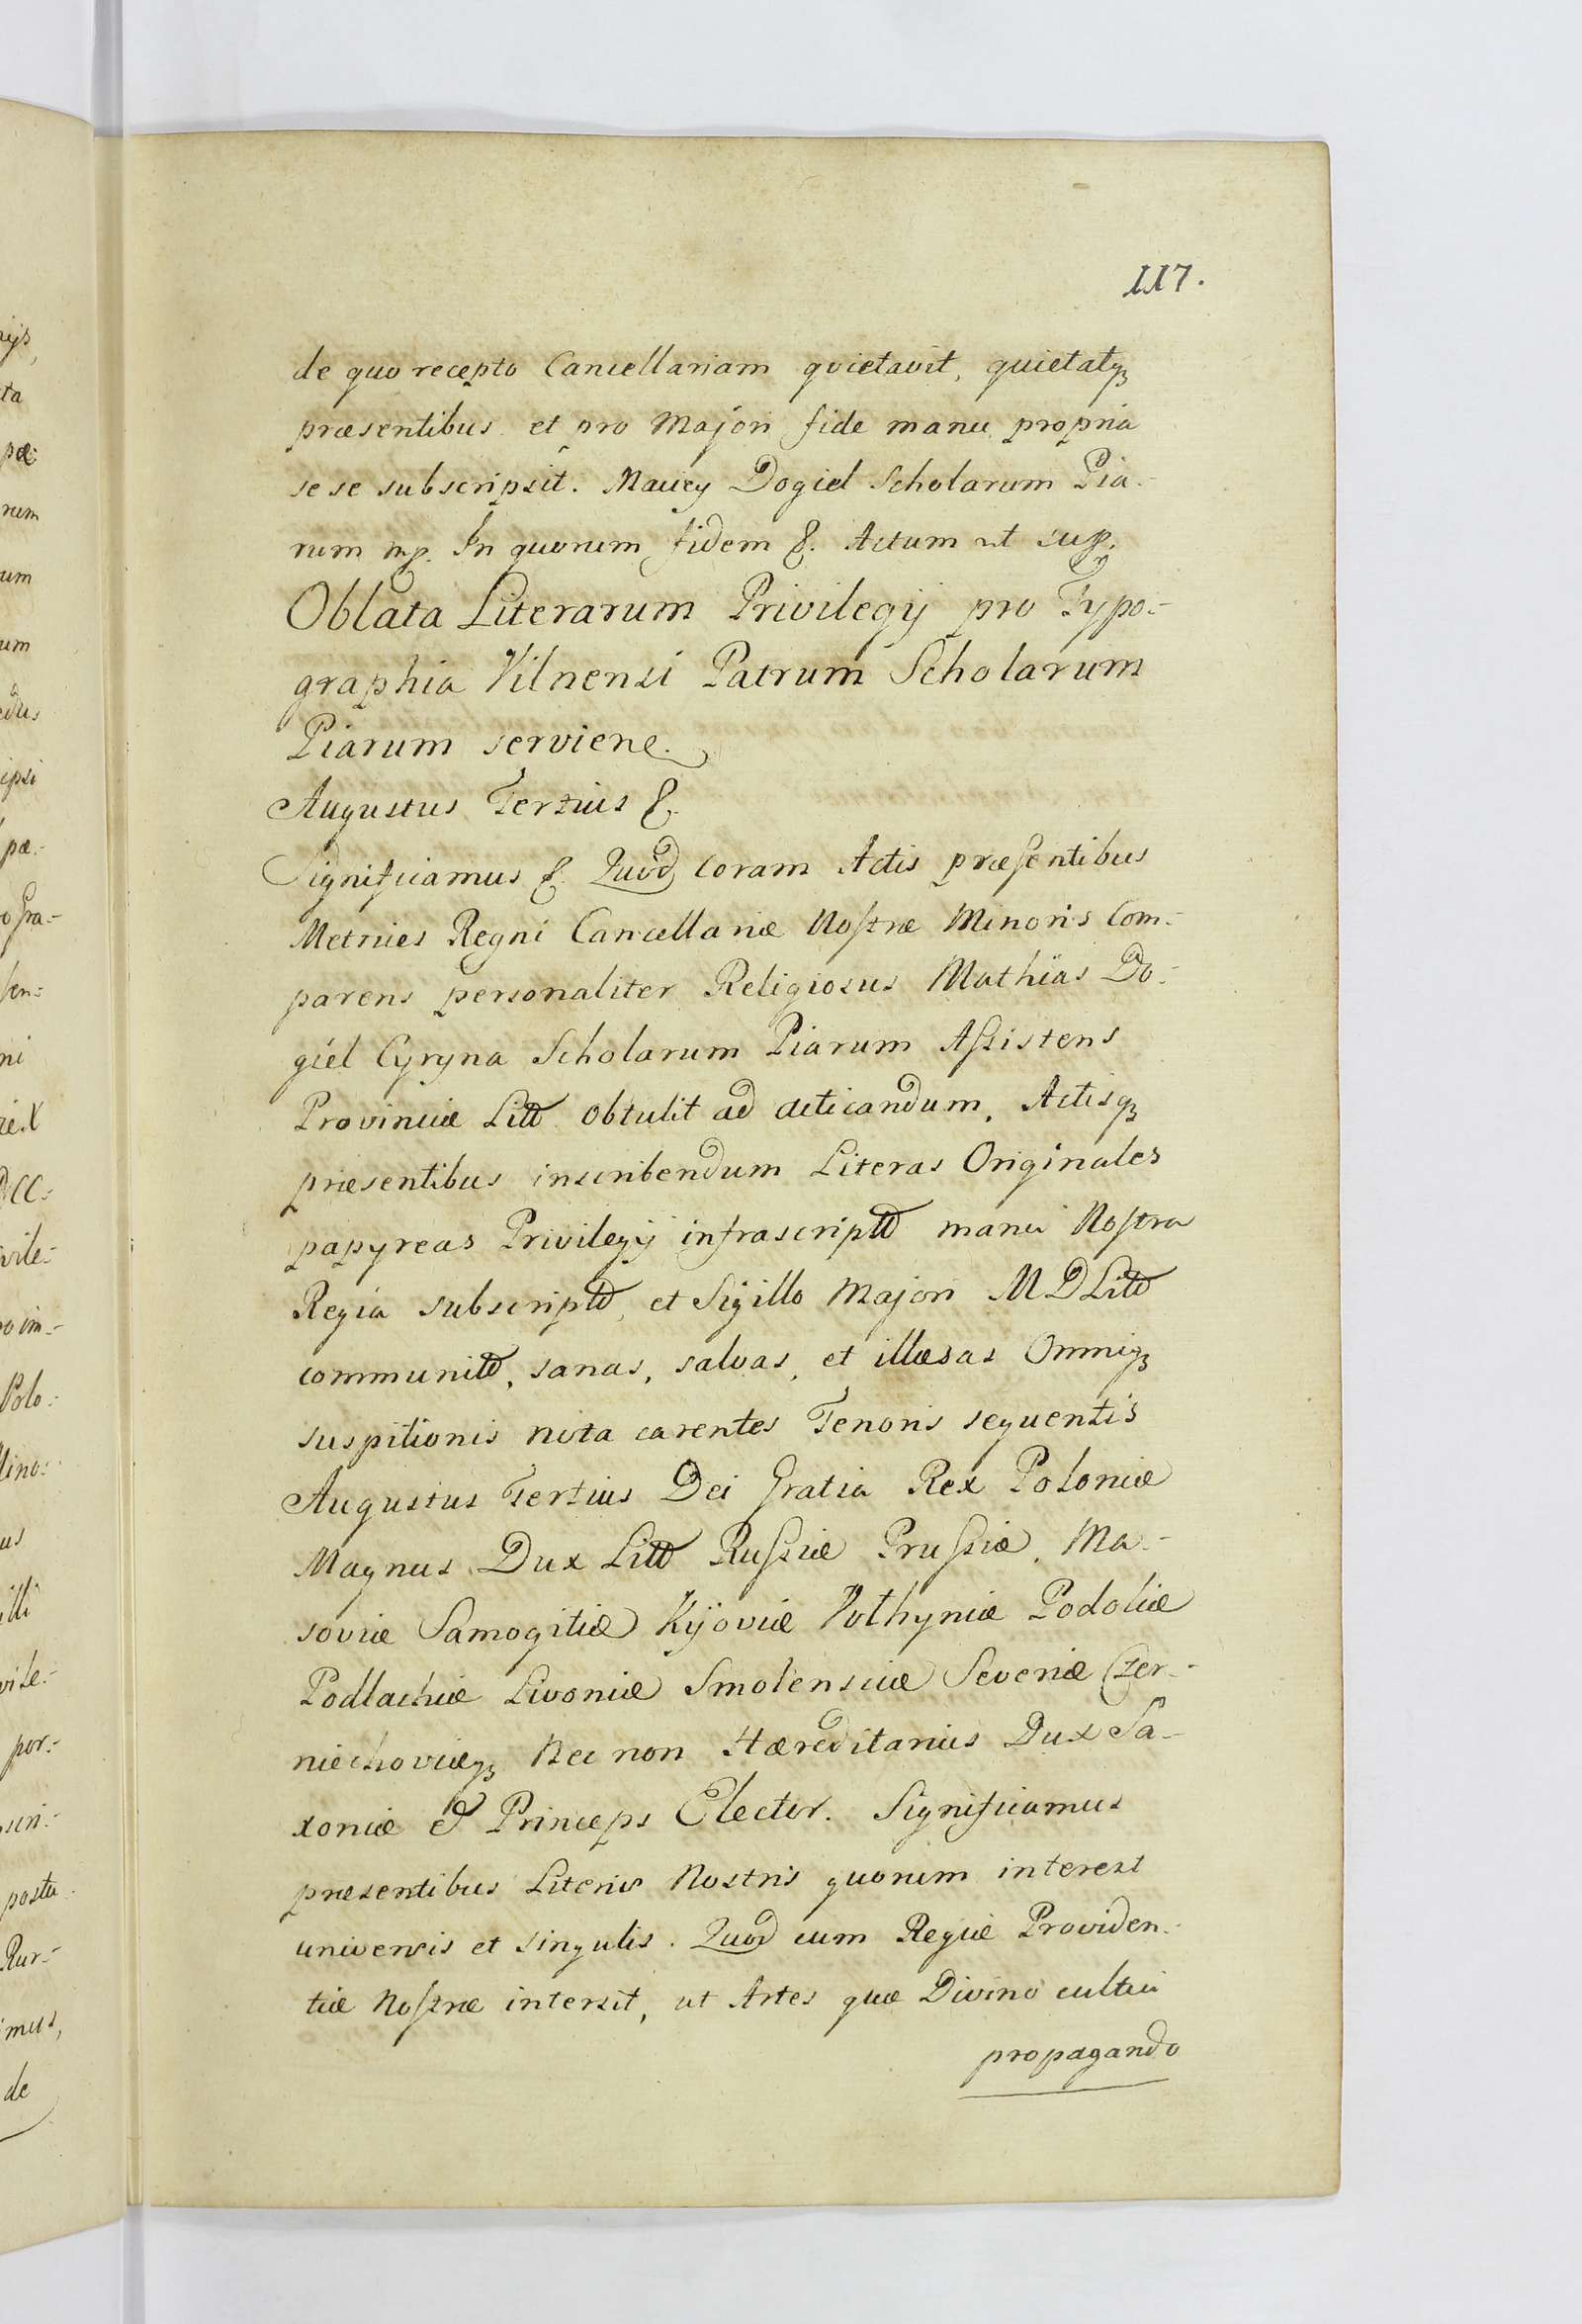 117.
de quo recepto Cancellariam quietavit, quietatq3
præsentibus et pro Majori fide manu propria
se se subscripsit. Maciey Dogiel Scholarum Pia-
rum mp. In quorum fidem &. Actum ut sup.
Oblata Literarum Privilegij pro Typo-
graphia Vilnensi Patrum Scholarum
Piarum serviens.
Augustus Tertius &.
Significamus &. Quod coram Actis præsentibus
Metrices Regni Cancellariæ Nostræ Minoris Com-
parens personaliter Religiosus Mathias Do-
giel Cyryna Scholarum Piarum Assistens
Provinciæ Litt obtulit ad acticandum, Actisq3
præsentibus inscribendum Literas Originales
papyreas Privilegij infrascriptt manu Nostra
Regia subscriptt, et Sigillo Majori M D Litt
communitt, sanas, salvas, et illæsas Omniq3
suspitionis nota carentes Tenoris sequentis
Augustus Tertius Dei Gratia Rex Poloniæ
Magnus Dux Litt Russiæ Prussiæ, Ma-
soviæ Samogitiæ Kijoviæ Volhyniæ Podoliæ
Podlachiæ Livoniæ Smolensciæ Severiæ Czer-
niechoviæq3 Nec non Hæreditarius Dux Sa-
xoniæ & Princeps Elector. Significamus
præsentibus Literis Nostris quorum interest
universis et singulis. Quod cum Regiæ Providen-
tiæ Nostræ intersit, ut Artes quæ Divino cultui
propagando